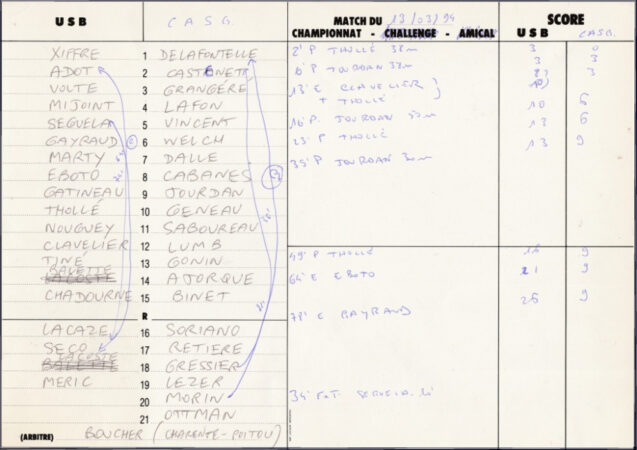 USB C A S G. MATCH DU 13/03/94 SCORE
CHAMPIONNAT - CHALLENGE - AMICAL USB CASG.
XIFFRE 1 DELAFONTELLE 2' P THOLLÉ 38m 3 0
ADOT 2 CASTGNET 6' P JOURDAN 32m 3 3
VOLTE 3 GRANGÉRE 13' E CLAVELIER 3
MIJOINT 4 LAFON + THOLLÉ 10 6
SEGUELA 5 VINCENT 16' P JOURDAN 50m 13 6
GAYRAUD (c) 6 WELCH 23' P THOLLÉ 13 9
MARTY 7 DALLE 35' P JOURDAN 30m
EBOTO 8 CABANES
GATINEAU 9 JOURDAN
THOLLÉ 10 GENEAU
NOUGUEY 11 SABOUREAU
CLAVELIER 12 LUMB 49' P THOLLÉ 16 9
TINÉ 13 GONIN 64' E EBOTO 21 9
BALETTE
LACOSTE 14 AJORQUE
CHADOURNE 15 BINET 78' E GAYRAUD 26 9
R
LACAZE 16 SORIANO
SECO 17 RETIERE
LACOSTE
BALETTE 18 GRESSIER
MERIC 19 LEZER
20 MORIN
21 OTTMAN
(ARBITRE) BOUCHER (CHARENTE-POITOU)